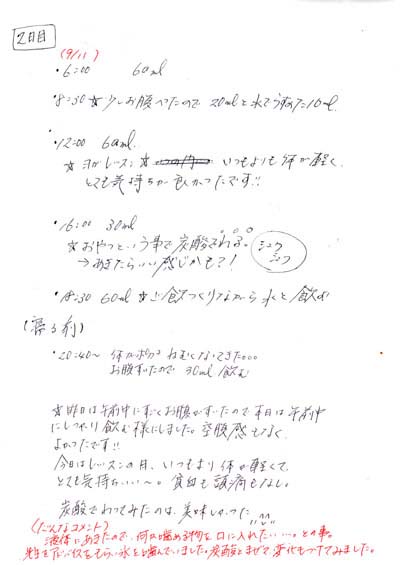 2日目
(9/11)
・6:00 60ml
・8:30 ☆少しお腹へったので 20mlと水でうすめた10ml.
・12:00 60ml.
☆ヨガレッスン☆ いつもよりも体が軽く、
とても気持ちが良かったです!!
・16:00 30ml
☆おやつという事で炭酸でわる。 シュワシュワ
→あきたらいい感じかも?!
・18:30 60ml ☆ご飯つくりながら水と飲む
(寝る前)
・20:40~ 体がポカポカ ねむくなってきた。。。
お腹すいたので 30ml 飲む
☆昨日は午前中にすごくお腹がすいたので 本日は午前中
にしっかり飲む様にしました。空腹感もなく
よかったです!!
今日はレッスンの日、いつもより体が軽くて、
とても気持ちいい~。貧血も頭痛もなし。
炭酸でわってみたのは、美味しかった^^
(だんなコメント)
液体にあきたので、何か噛める物を口に入れたい…。との事。
先生にアドバイスをもらい水を噛んでいました。炭酸とまぜて変化もつけてみました。